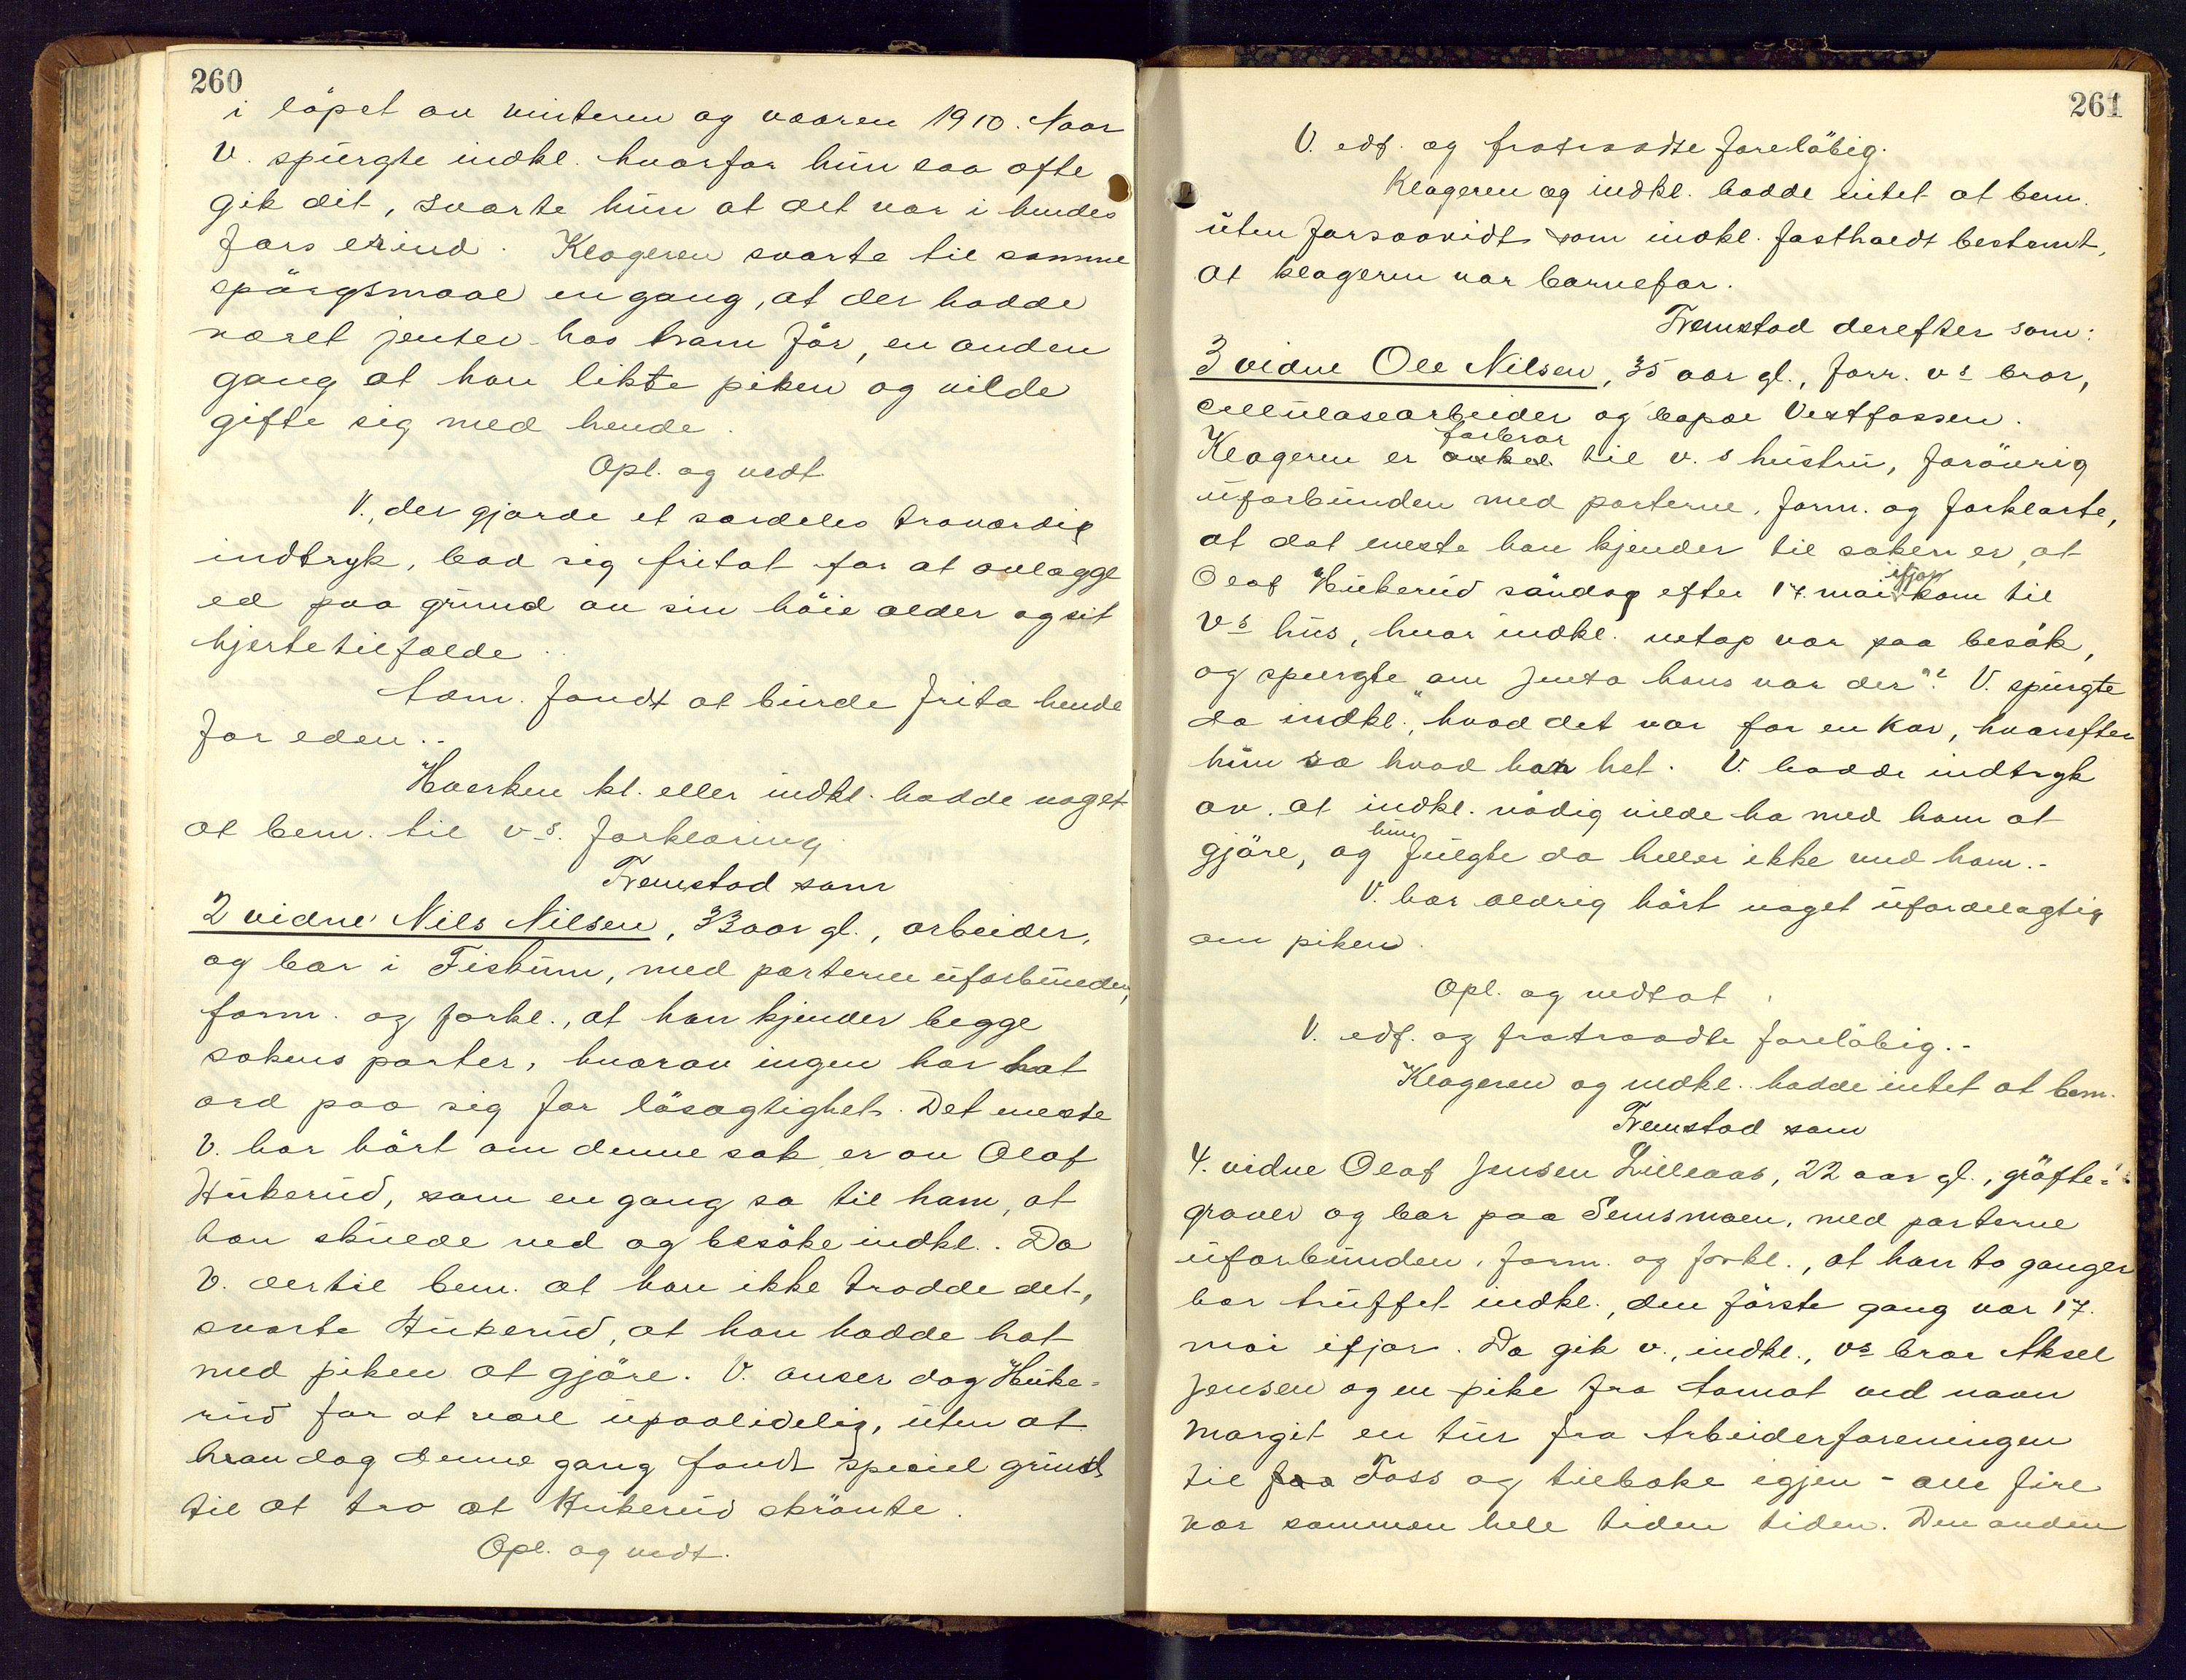 260
i löpet av vinteren og vaaren 1910. Naar
V. spurgte indkl. hvorfor hun saa ofte
gik dit, svarte hun at det var i hendes
fars erind. Klageren svarte til samme
spörgsmaal en gang, at der hadde
været jenter hos ham för, en anden
gang at han likte piken og vilde
gifte sig med hende.
Opl. og vedt.
V., der gjorde et særdeles troværdig
indtryk, bad sig fritat for at avlægge
ed paa grund av sin höie alder og sit
hjertetilfælde.
Dom. fandt at burde frita hende
for eden.
Hverken kl. eller indkl. hadde noget
at bem. til v-s. forklaring.
Fremstod som
2 vidne Nils Nilsen, 33 aar gl., arbeider,
og bor i Fiskum, med parterne uforbunden,
form. og forkl., at han kjender begge
sakens parter, hvorav ingen har hat
ord paa sig for lösagtighet. Det eneste
V. har hört om denne sak er av Olaf
Hukerud, som en gang sa til ham, at
han skulde ned og besöke indkl.. Da
V. dertil bem. at han ikke trodde det,
svarte Hukerud, at han hadde hat
med piken at gjöre. V. anser dog Huke-
rud for at være upaalidelig, uten at
han dog denne gang fandt speciel grund
til at tro at Hukerud skrönte.
Opl. og vedt.
261
V. edf. og fratraadte foreløbig.
Klageren og indkl. hadde intet at bem.
uten forsaavidt som indkl. fastholdt bestemt,
at klageren var barnefar.
Fremstod derefter som:
3 vidne Ole Nilsen, 35 aar gl., forr. v s bror,
cellulosearbeider og bopæl Vestfossen.
farbror
Klageren er onkel til v. s hustru, forövrig
uforbunden med parterne, form. og forklarte,
at det eneste han kjender til saken er, at
ifjor
Olaf Hukerud söndag efter 17. mai kom til
V s hus, hvor indkl. netop var paa besök,
og spurgte "om jenta hans var der"? V. spurgte
da indkl., hvad det var for en kar, hvorefter
hun sa hvad han het. V. hadde indtryk
av, at indkl. nödig vilde ha med ham at
hun
gjöre, og fulgte da heller ikke med ham.-
V. har aldrig hört noget ufordelagtig
om piken.
Opl. og vedtat.
V. edf. og fratraadte forelöbig.-
Klageren og indkl. hadde intet at bem.
Fremstod som
4. vidne Olaf Jensen Lilleaas, 22 aar gl., gröfte-
graver og bor paa Semsmoen, med parterne
uforbunden, form. og forkl., at han to ganger
har truffet indkl., den förste gang var 17.
mai ifjor. Da gik v., indkl., vs bror Aksel
Jensen og en pike fra Aamot ved navn
Margit en tur fra Arbeiderforeningen
til Foss og tilbake igjen - alle fire
var sammen hele tiden tiden. Den anden